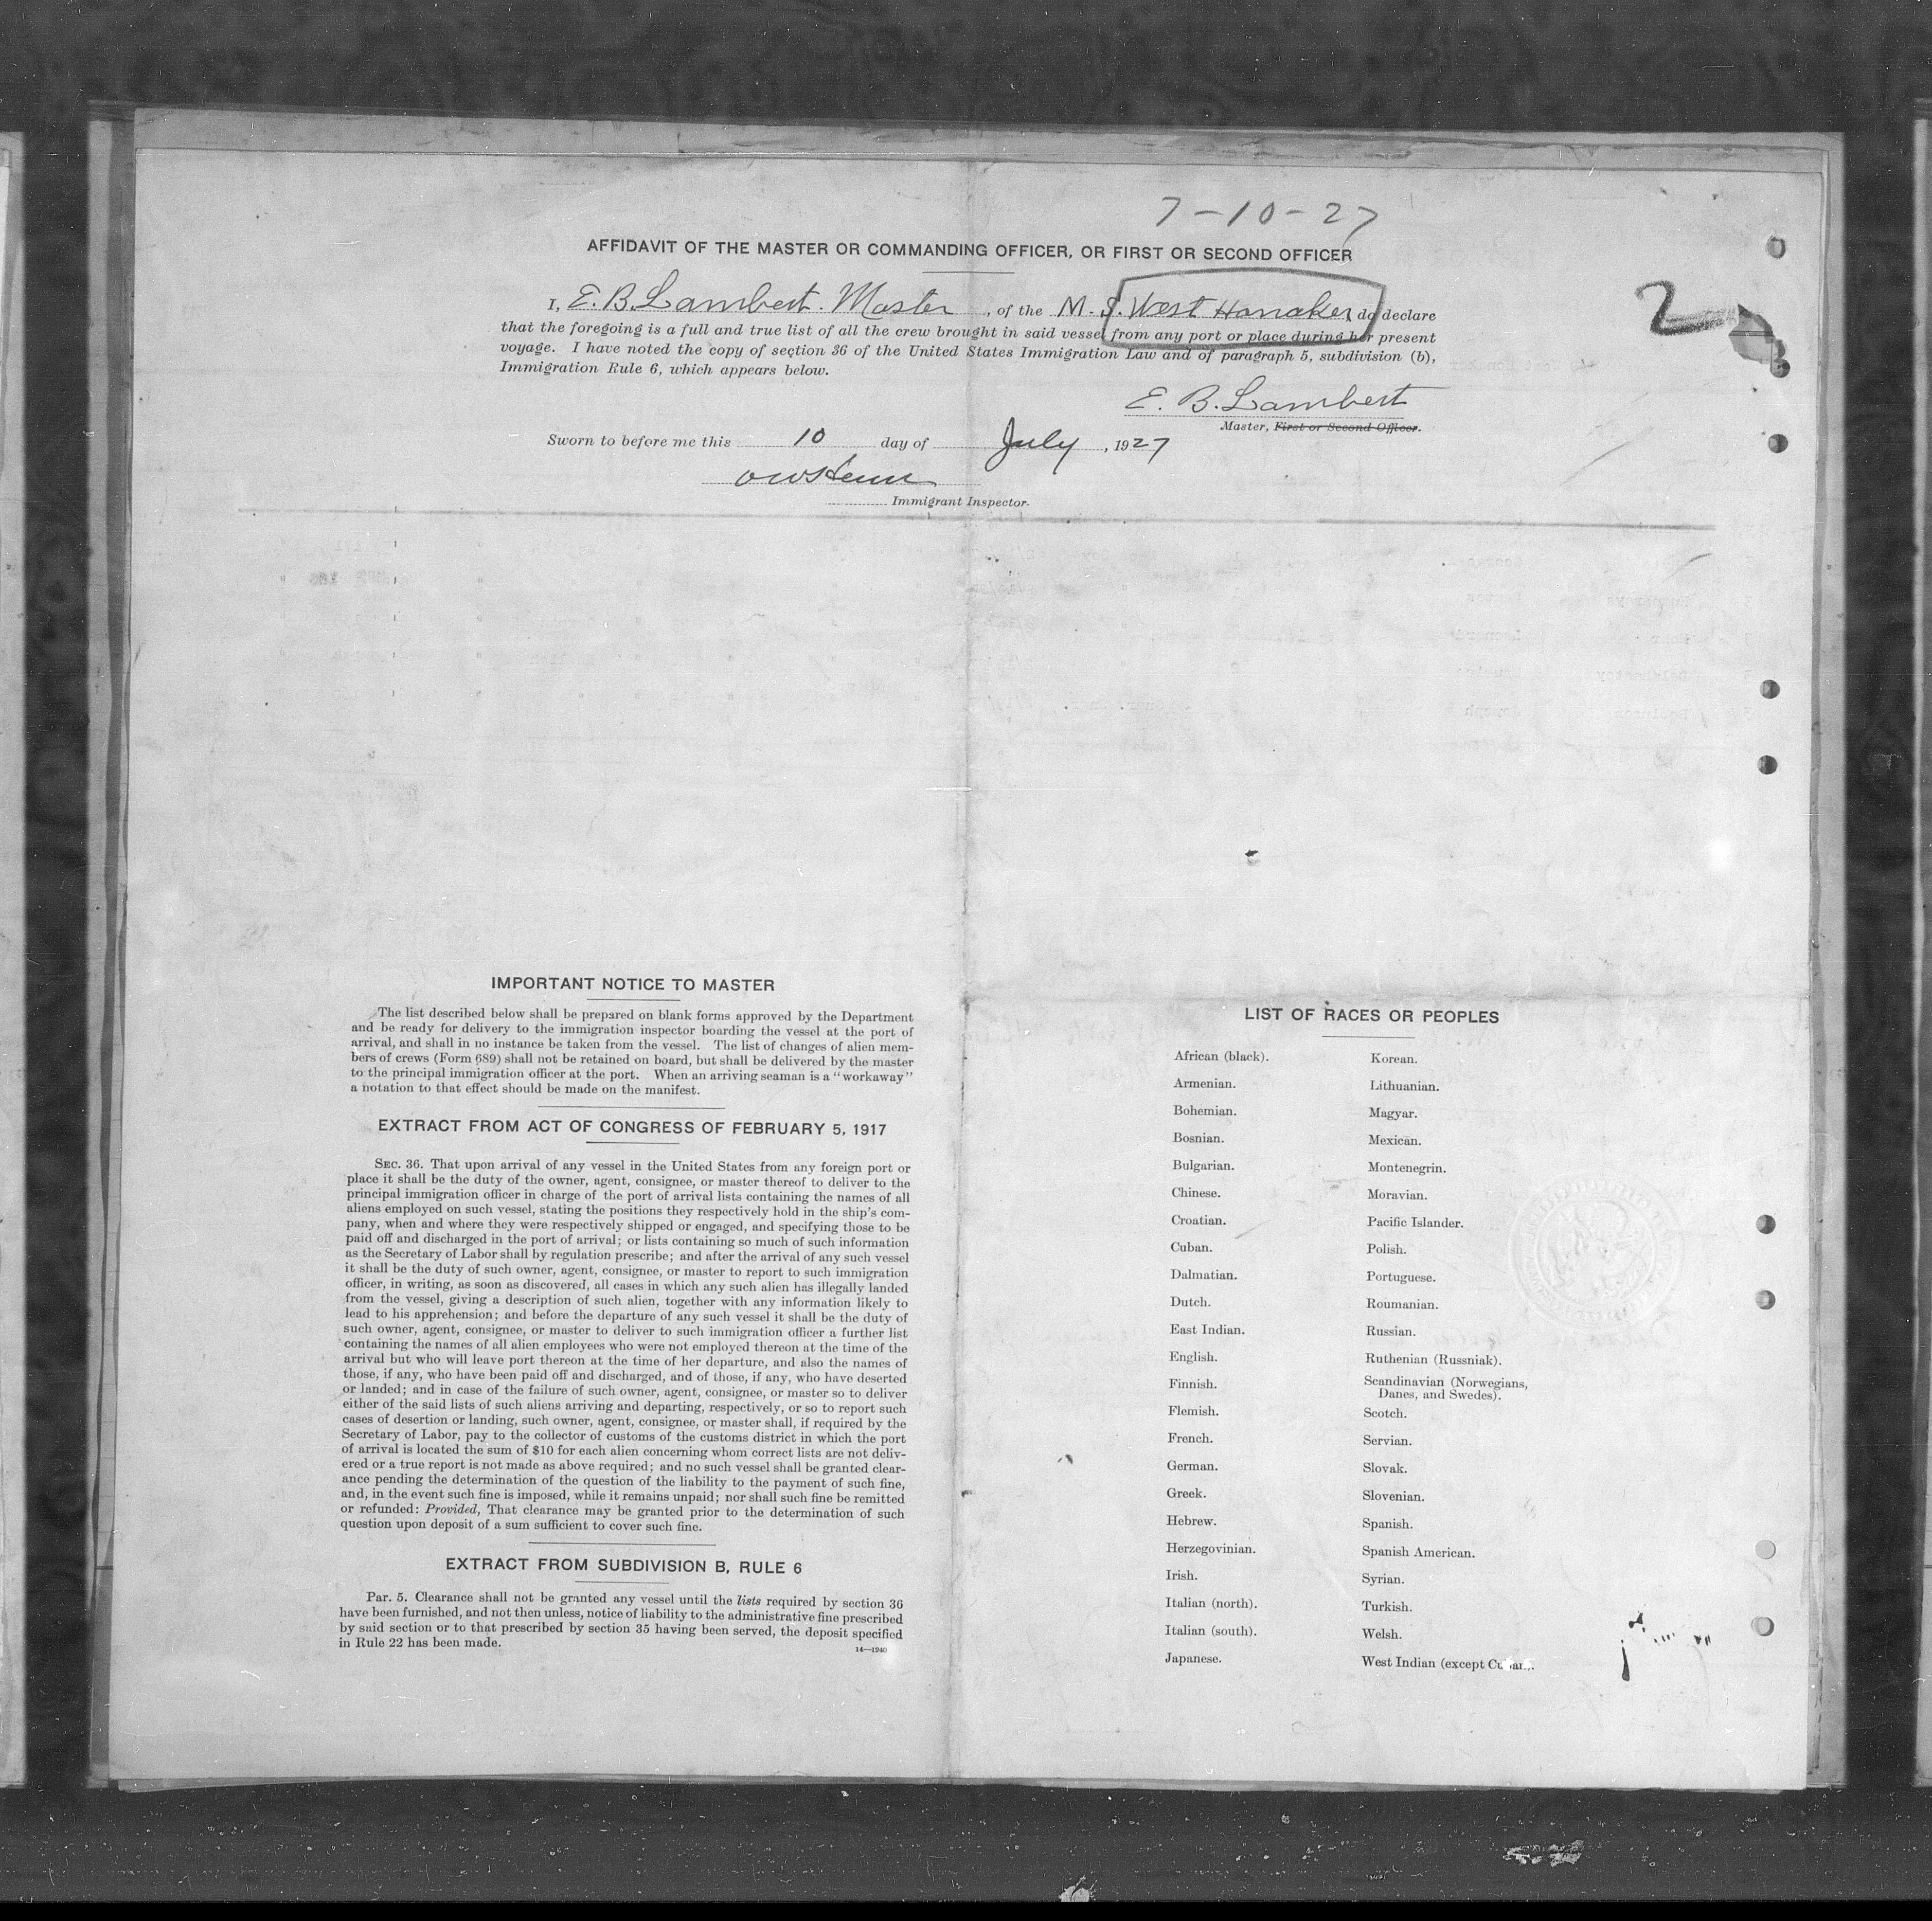 7-10-27
AFFIDAVIT OF THE MASTER OR COMMANDING OFFICER, OR FIRST OR SECOND OFFICER
I, E. B. Lambert. Master, of the M. S. West Honaker, do declare
that the foregoing is a full and true list of all the crew brought in said vessel from any port or place during her present
voyage. I have noted the copy of section 36 of the United States Immigration Law and of paragraph 5, subdivision (b),
Immigration Rule 6, which appears below.
2
E. B. Lambert
Master, First or Second Officer.
Sworn to before me this 10 day of July, 1927
Immigrant Inspector.
IMPORTANT NOTICE TO MASTER
The list described below shall be prepared on blank forms approved by the Department
and be ready for delivery to the immigration inspector boarding the vessel at the port of
arrival, and shall in no instance be taken from the vessel. The list of changes of alien mem-
bers of crews (Form 689) shall not be retained on board, but shall be delivered by the master
to the principal immigration officer at the port. When an arriving seaman is a "workaway"
a notation to that effect should be made on the manifest.
EXTRACT FROM ACT OF CONGRESS OF FEBRUARY 5, 1917
SEC. 36. That upon arrival of any vessel in the United States from any foreign port or
place it shall be the duty of the owner, agent, consignee, or master thereof to deliver to the
principal immigration officer in charge of the port of arrival lists containing the names of all
aliens employed on such vessel, stating the positions they respectively hold in the ship's com-
pany, when and where they were respectively shipped or engaged, and specifying those to be
paid off and discharged in the port of arrival; or lists containing so much of such information
as the Secretary of Labor shall by regulation prescribe; and after the arrival of any such vessel
it shall be the duty of such owner, agent, consignee, or master to report to such immigration
officer, in writing, as soon as discovered, all cases in which any such alien has illegally landed
from the vessel, giving a description of such alien, together with any information likely to
lead to his apprehension; and before the departure of any such vessel it shall be the duty of
such owner, agent, consignee, or master to deliver to such immigration officer a further list
containing the names of all alien employees who were not employed thereon at the time of the
arrival but who will leave port thereon at the time of her departure, and also the names of
those, if any, who have been paid off and discharged, and of those, if any, who have deserted
or landed; and in case of the failure of such owner, agent, consignee, or master so to deliver
either of the said lists of such aliens arriving and departing, respectively, or so to report such
cases of desertion or landing, such owner, agent, consignee, or master shall, if required by the
Secretary of Labor, pay to the collector of customs of the customs district in which the port
of arrival is located the sum of $10 for each alien concerning whom correct lists are not deliv-
ered or a true report is not made as above required; and no such vessel shall be granted clear-
ance pending the determination of the question of the liability to the payment of such fine,
and, in the event such fine is imposed, while it remains unpaid; nor shall such fine be remitted
or refunded: Provided, That clearance may be granted prior to the determination of such
question upon deposit of a sum sufficient to cover such fine.
EXTRACT FROM SUBDIVISION B, RULE 6
Par. 5. Clearance shall not be granted any vessel until the lists required by section 36
have been furnished, and not then unless, notice of liability to the administrative fine prescribed
by said section or to that prescribed by section 35 having been served, the deposit specified
in Rule 22 has been made.
14—1240
LIST OF RACES OR PEOPLES
African (black).
Armenian.
Bohemian.
Bosnian.
Bulgarian.
Chinese.
Croatian.
Cuban.
Dalmatian.
Dutch.
East Indian.
English.
Finnish.
Flemish.
French.
German.
Greek.
Hebrew.
Herzegovinian.
Irish.
Italian (north).
Italian (south).
Japanese.
Korean.
Lithuanian.
Magyar.
Mexican.
Montenegrin.
Moravian.
Pacific Islander.
Polish.
Portuguese.
Roumanian.
Russian.
Ruthenian (Russniak).
Scandinavian (Norwegians,
Danes, and Swedes).
Scotch.
Servian.
Slovak.
Slovenian.
Spanish.
Spanish American.
Syrian.
Turkish.
Welsh.
West Indian (except Cuban).